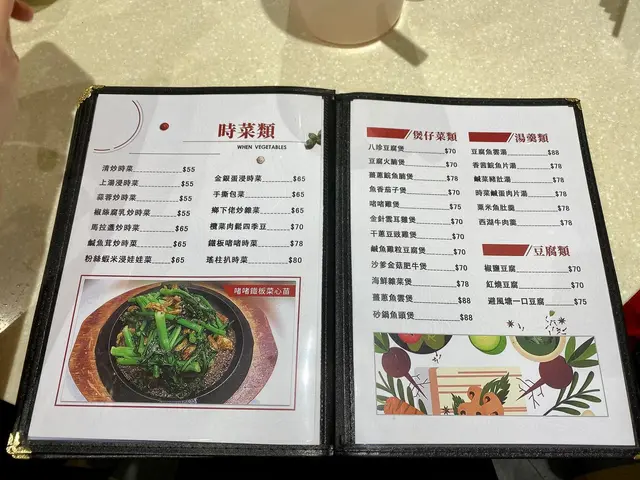 時菜類
WHEN VEGETABLES
清炒時菜 $55
上湯浸時菜 $55
蒜蓉炒時菜 $55
椒絲腐乳炒時菜 $55
馬拉盞炒時菜 $65
鹹魚茸炒時菜 $65
粉絲蝦米浸娃娃菜 $65
金銀蛋浸時菜 $65
手撕包菜 $65
鄉下佬炒雜菜 $65
欖菜肉鬆四季豆 $70
鐵板啫啫時菜 $78
瑤柱扒時菜 $80
啫啫鐵板菜心苗
煲仔菜類
八珍豆腐煲 $70
豆腐火腩煲 $70
薑蔥鯇魚腩煲 $78
魚香茄子煲 $70
啫啫雞煲 $75
金針雲耳雞煲 $70
干蔥豆豉雞煲 $70
鹹魚雞粒豆腐煲 $70
沙爹金菇肥牛煲 $70
海鮮雜菜煲 $78
薑蔥魚雲煲 $88
砂鍋魚頭煲 $88
湯羹類
豆腐魚雲湯 $88
香茜鯇魚片湯 $78
鹹菜豬肚湯 $78
時菜鹹蛋肉片湯 $78
粟米魚肚羹 $78
西湖牛肉羹 $78
豆腐類
椒鹽豆腐 $70
紅燒豆腐 $70
避風塘一口豆腐 $75